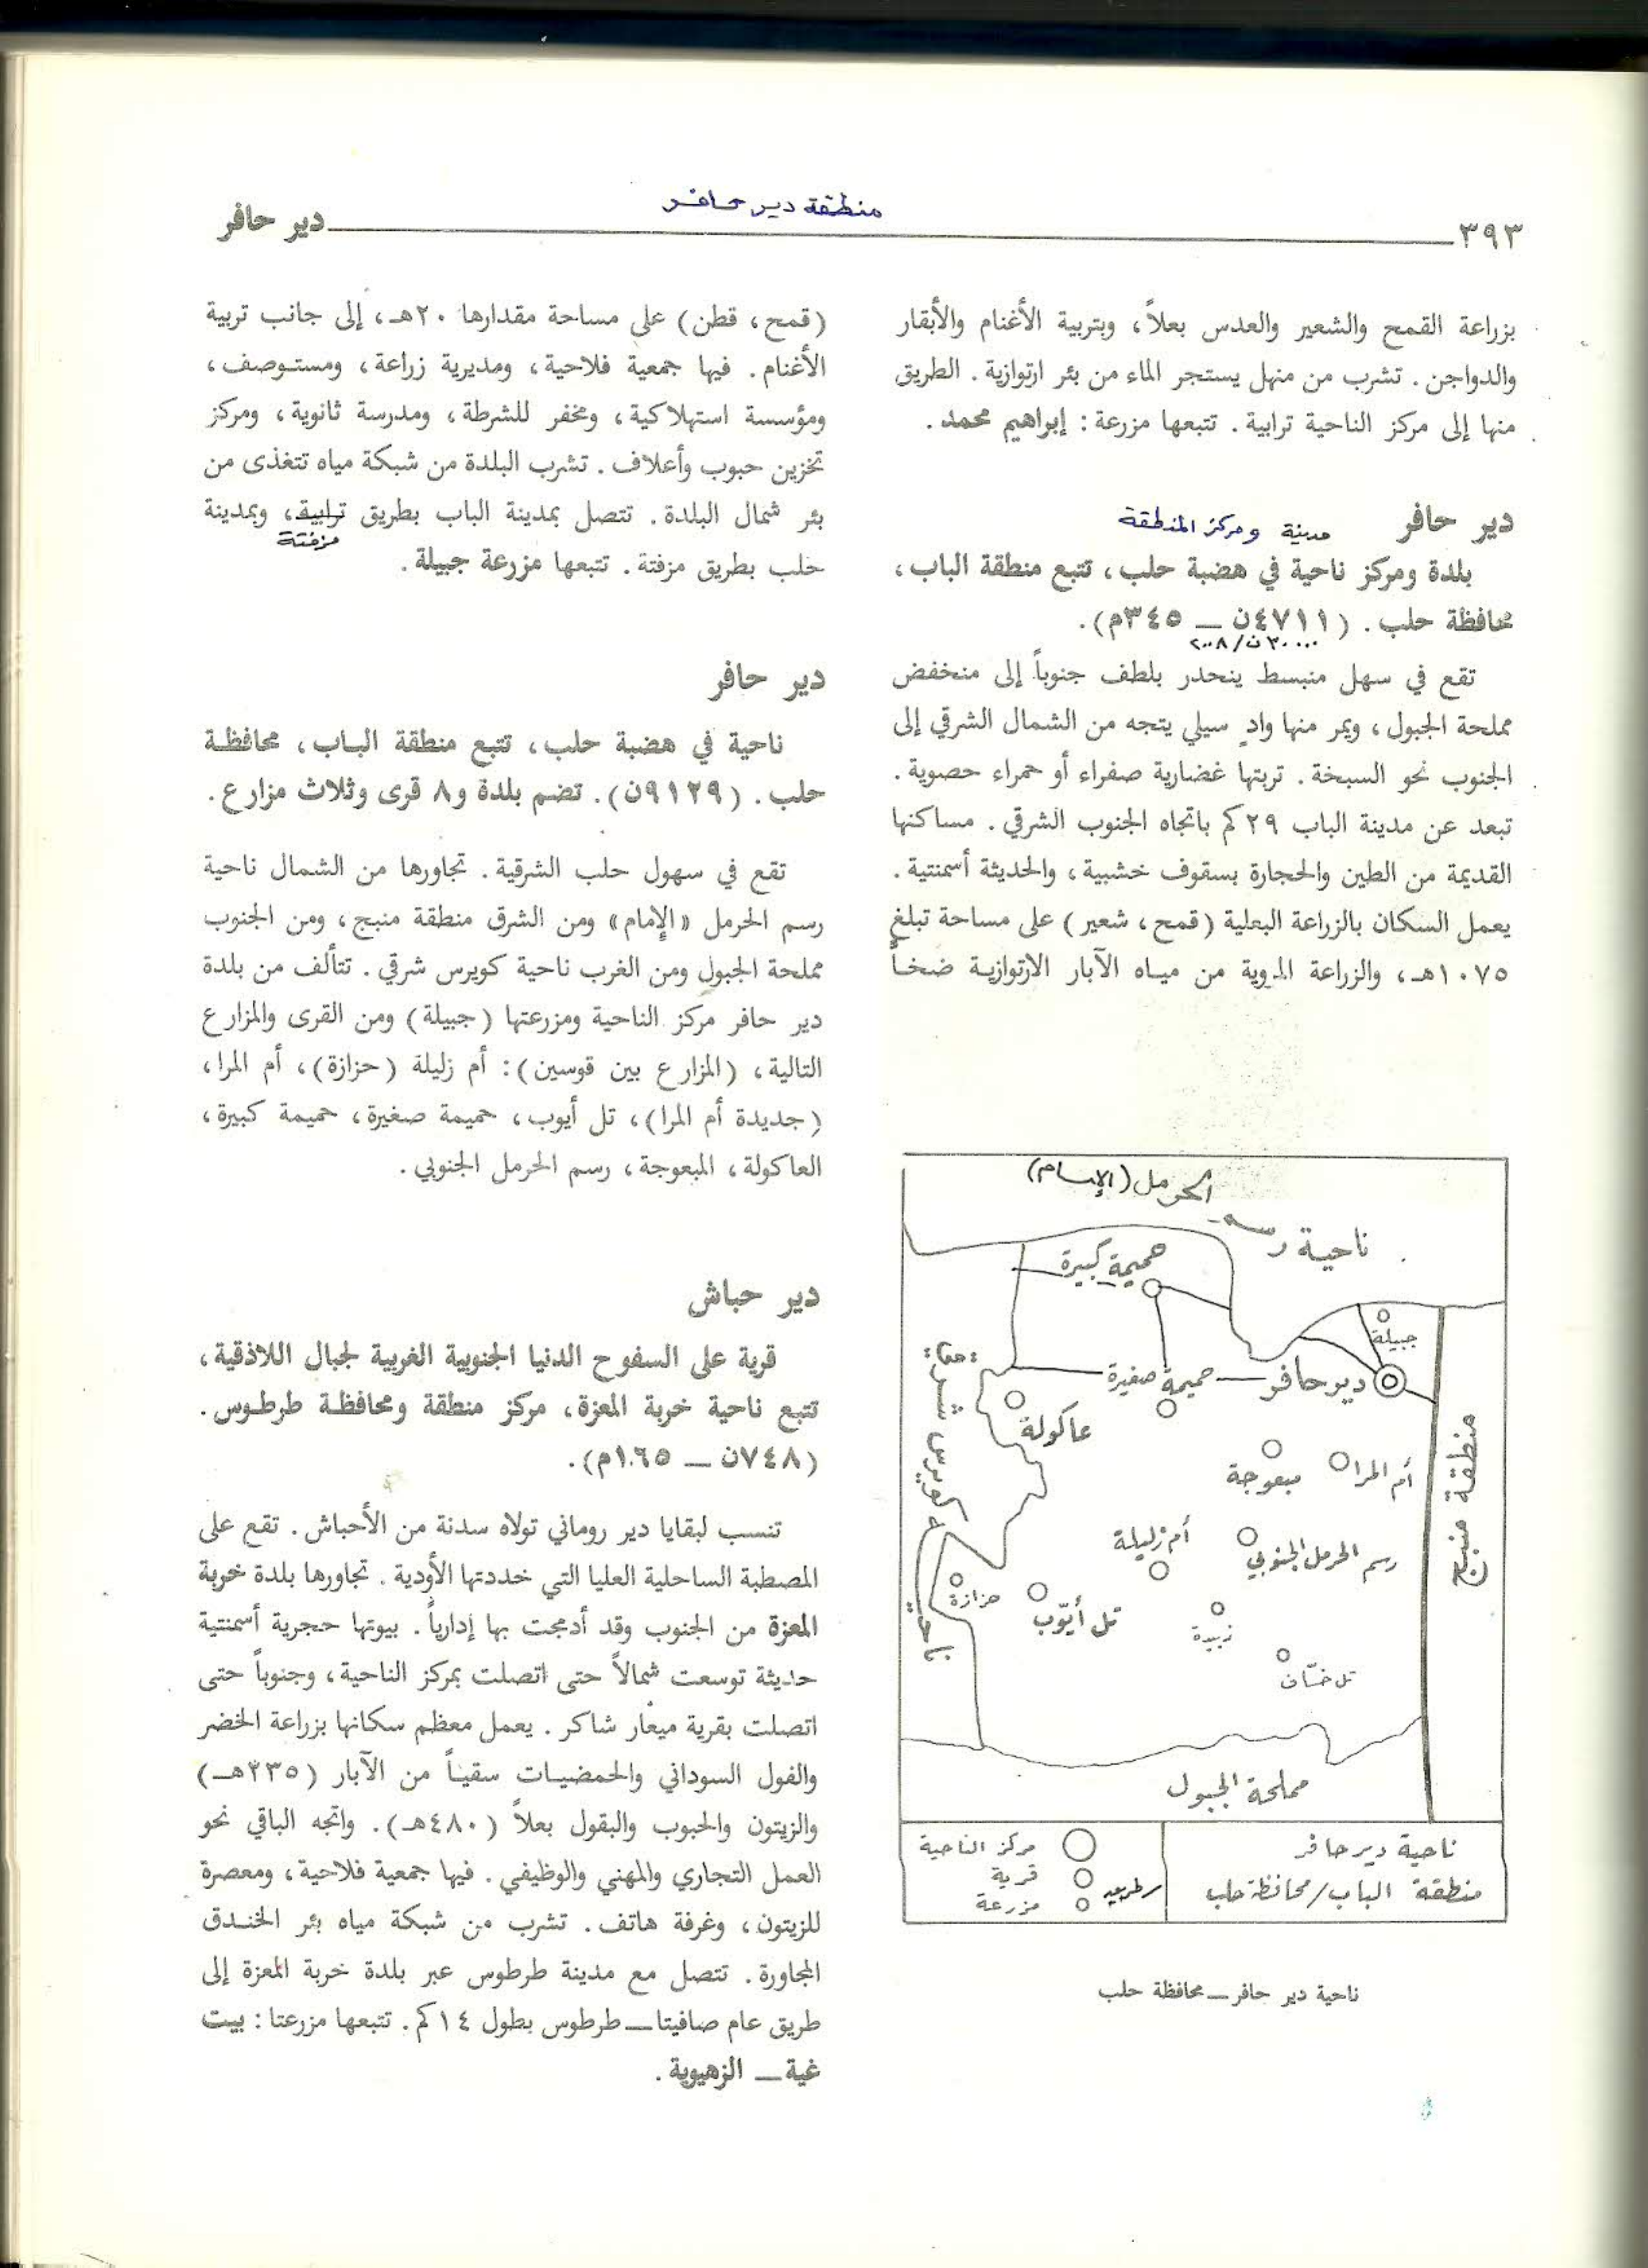 ٣٩٣
منطقة دير حافر
دير حافر
بزراعة القمح والشعير والعدس بعلاً، وبتربية الأغنام والأبقار
والدواجن. تشرب من منهل يستجر الماء من بئر ارتوازية. الطريق
منها إلى مركز الناحية ترابية. تتبعها مزرعة: إبراهيم محمد.
دير حافر
مدينة ومركز المنطقة
بلدة ومركز ناحية في هضبة حلب، تتبع منطقة الباب،
محافظة حلب. (٤٧١١ن ــ ٣٤٥م).
٣٠٠٠٠ن/٢٠٠٨
تقع في سهل منبسط ينحدر بلطف جنوباً إلى منخفض
مملحة الجبول، ويمر منها وادٍ سيلي يتجه من الشمال الشرقي إلى
الجنوب نحو السبخة. تربتها غضارية صفراء أو حمراء حصوية.
تبعد عن مدينة الباب ٢٩كم باتجاه الجنوب الشرقي. مساكنها
القديمة من الطين والحجارة بسقوف خشبية، والحديثة أسمنتية.
يعمل السكان بالزراعة البعلية (قمح، شعير) على مساحة تبلغ
١٠٧٥هـ، والزراعة المروية من مياه الآبار الارتوازية ضخاً
ناحية رسم
الحرمل (الإمام)
حميمة كبيرة
جبيلة
دير حافر
حميمة صغيرة
عاكولة
أم المرا
مبعوجة
منطقة منبج
أم زليلة
رسم الحرمل الجنوبي
حزازة
تل أيّوب
زبيدة
ناحية كويرس شرقي
مملحة الجبول
ناحية دير حافر
منطقة الباب/محافظة حلب
مركز الناحية
قرية
مزرعة
ناحية دير حافر ــ محافظة حلب
(قمح، قطن) على مساحة مقدارها ٢٠هـ، إلى جانب تربية
الأغنام. فيها جمعية فلاحية، ومديرية زراعة، ومستوصف،
ومؤسسة استهلاكية، ومخفر للشرطة، ومدرسة ثانوية، ومركز
تخزين حبوب وأعلاف. تشرب البلدة من شبكة مياه تتغذى من
بئر شمال البلدة. تتصل بمدينة الباب بطريق ترابية، وبمدينة
مزفتة
حلب بطريق مزفتة. تتبعها مزرعة جبيلة.
دير حافر
ناحية في هضبة حلب، تتبع منطقة الباب، محافظة
حلب. (٩١٢٩ن). تضم بلدة و٨ قرى وثلاث مزارع.
تقع في سهول حلب الشرقية. تجاورها من الشمال ناحية
رسم الحرمل «الإمام» ومن الشرق منطقة منبج، ومن الجنوب
مملحة الجبول ومن الغرب ناحية كويرس شرقي. تتألف من بلدة
دير حافر مركز الناحية ومزرعتها (جبيلة) ومن القرى والمزارع
التالية، (المزارع بين قوسين): أم زليلة (حزازة)، أم المرا،
(جديدة أم المرا)، تل أيوب، حميمة صغيرة، حميمة كبيرة،
العاكولة، المبعوجة، رسم الحرمل الجنوبي.
دير حباش
قرية على السفوح الدنيا الجنوبية الغربية لجبال اللاذقية،
تتبع ناحية خربة المعزة، مركز منطقة ومحافظة طرطوس.
(٧٤٨ن ــ ١٦٥م).
تنسب لبقايا دير روماني تولاه سدنة من الأحباش. تقع على
المصطبة الساحلية العليا التي خددتها الأودية. تجاورها بلدة خربة
المعزة من الجنوب وقد أدمجت بها إدارياً. بيوتها حجرية أسمنتية
حديثة توسعت شمالاً حتى اتصلت بمركز الناحية، وجنوباً حتى
اتصلت بقرية ميعار شاكر. يعمل معظم سكانها بزراعة الخضر
والفول السوداني والحمضيات سقياً من الآبار (٢٣٥هـ)
والزيتون والحبوب والبقول بعلاً (٤٨٠هـ). واتجه الباقي نحو
العمل التجاري والمهني والوظيفي. فيها جمعية فلاحية، ومعصرة
للزيتون، وغرفة هاتف. تشرب من شبكة مياه بئر الخندق
المجاورة. تتصل مع مدينة طرطوس عبر بلدة خربة المعزة إلى
طريق عام صافيتا ــ طرطوس بطول ١٤كم. تتبعها مزرعتا: بيت
غية ــ الزهيوية.